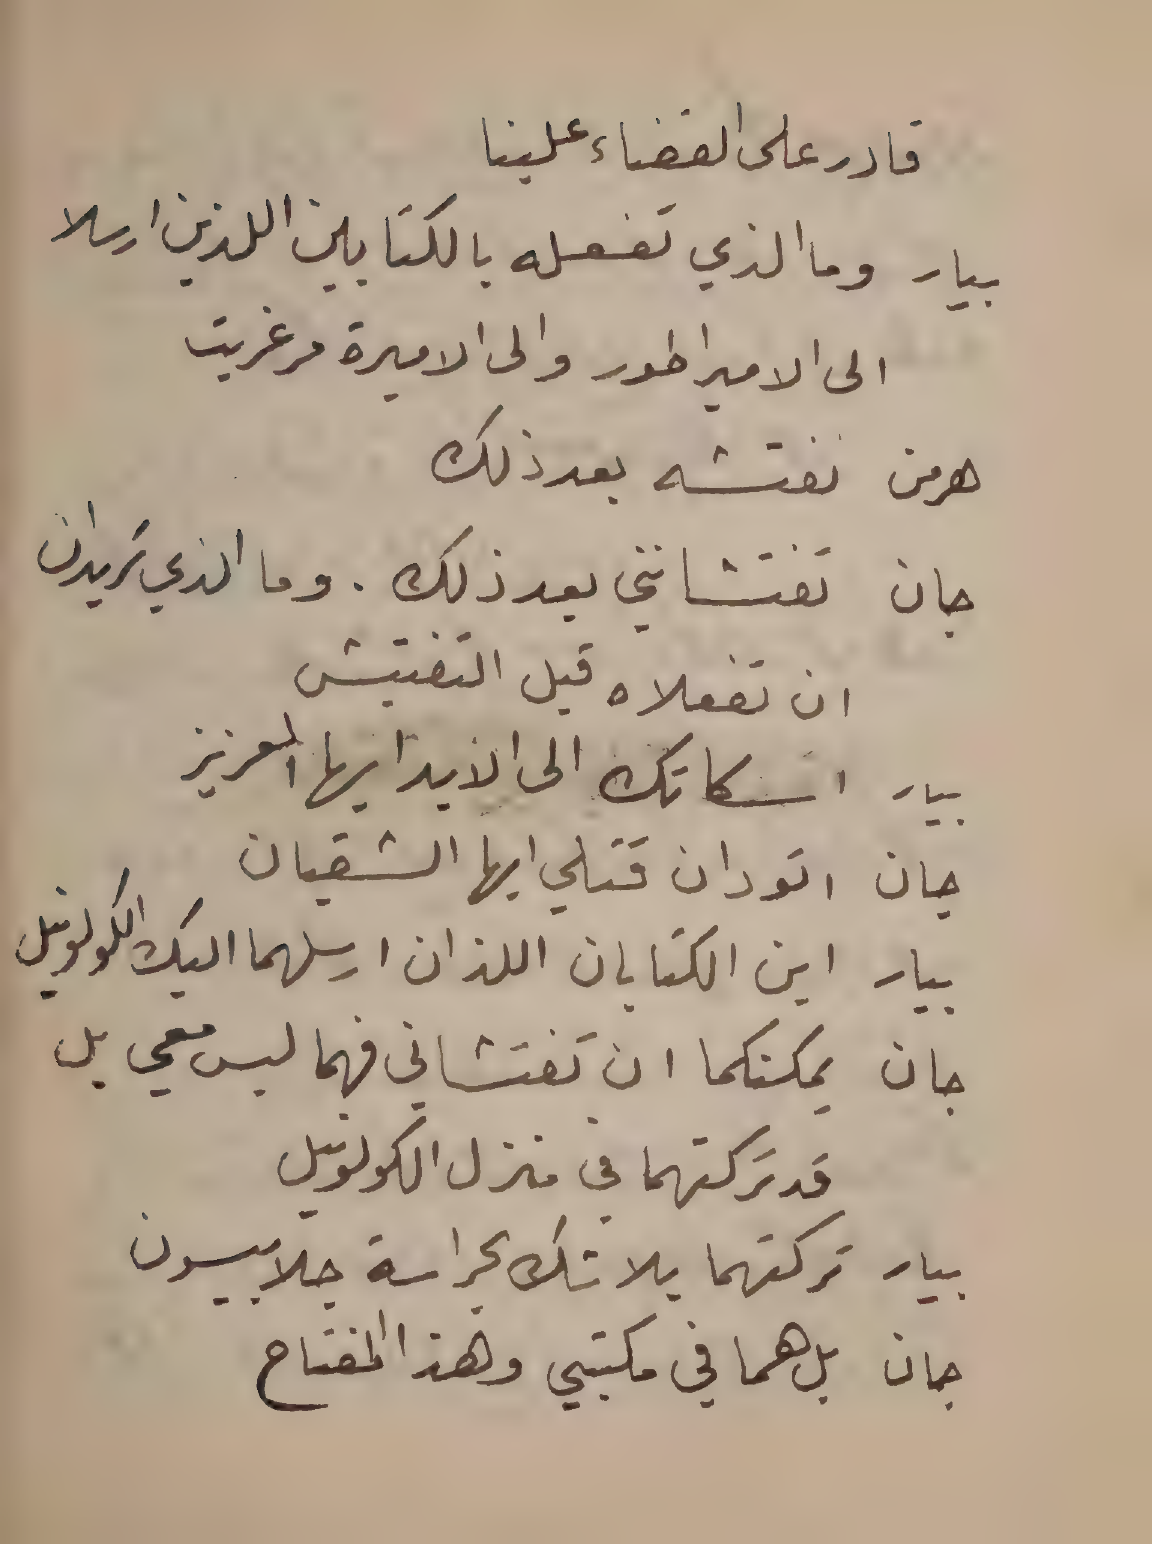 قادر على القضاء علينا
بيار وما الذي تفعله بالكتابين اللذين ارسلا
الى الامبراطور والى الاميرة مرغريت
هرمن نفتشه بعد ذلك
جان تفتشانني بعد ذلك . وما الذي تريدان
ان تفعلاه قبل التفتيش
بيار اسكاتك الى الابد ايها العزيز
جان اتودان قتلي ايها الشقيان
بيار اين الكتابان اللذان ارسلهما اليك الكولونيل
جان يمكنكما ان تفتشاني فهما ليس معي بل
قد تركتهما في منزل الكولونيل
بيار تركتهما بلا شك بحراسة جلابيسون
جان بل هما في مكتبي وهذا المفتاح